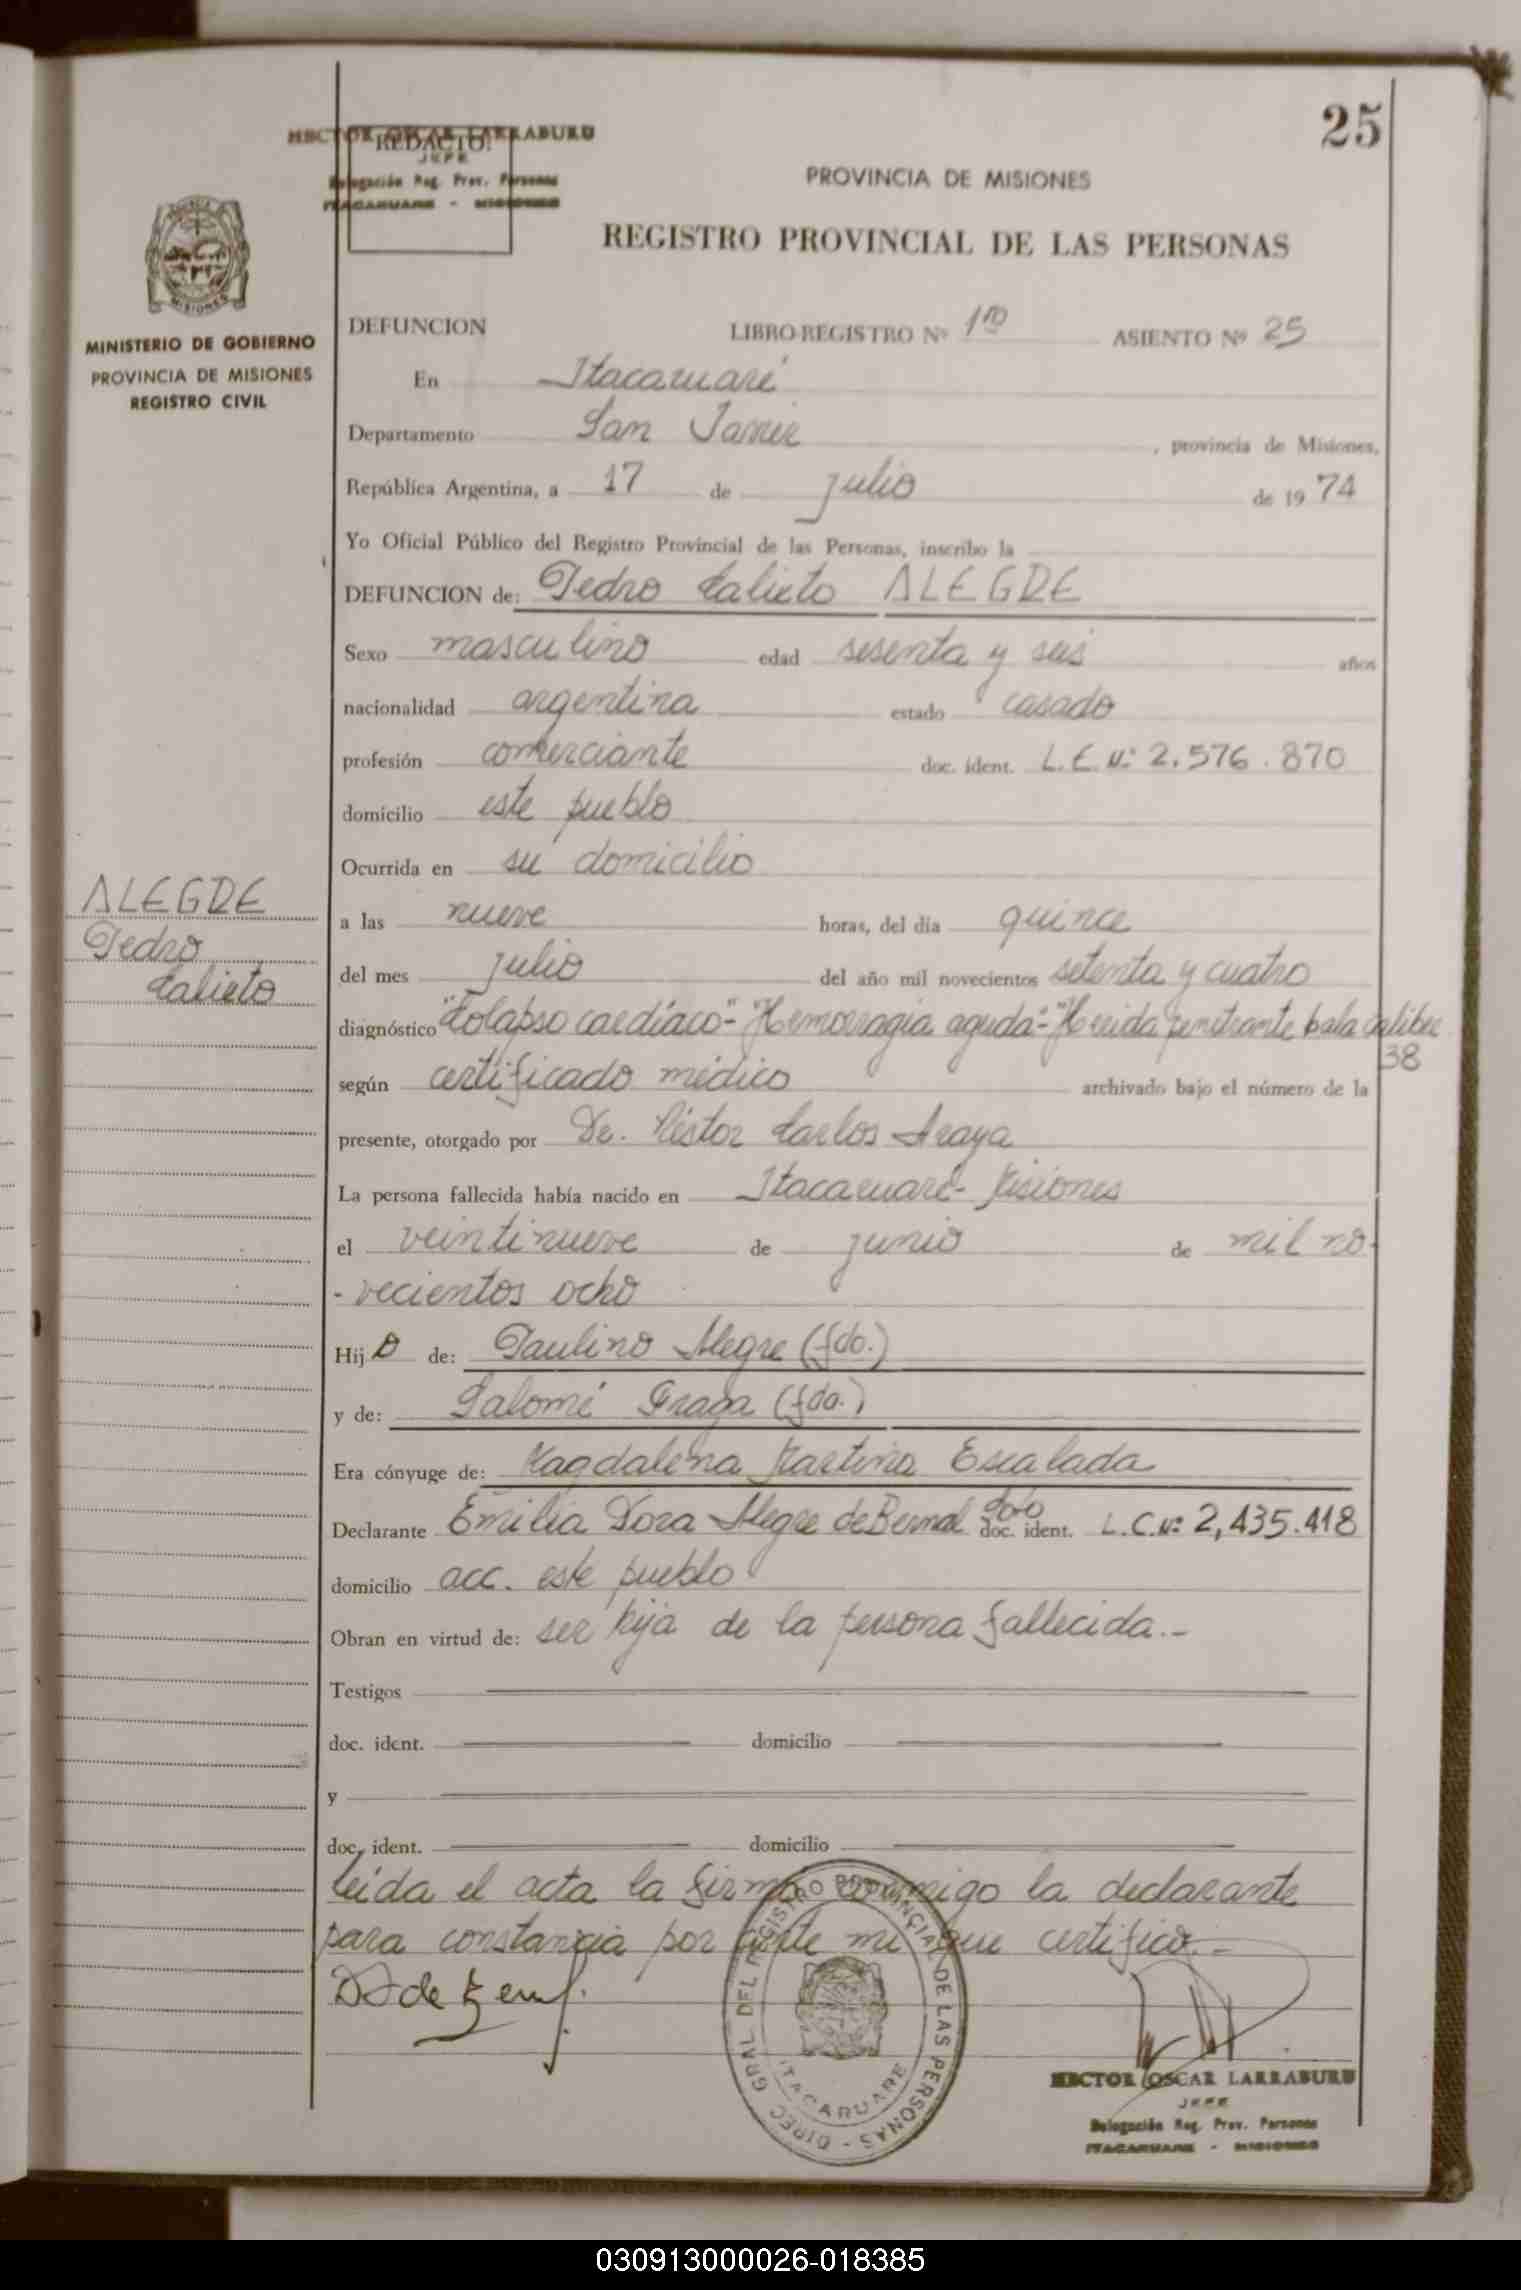 25
HECTOR OSCAR LARRABURU
REDACTO:
JEFE
Delegación Reg. Prov. Personas
ITACARUARE - MISIONES
PROVINCIA DE MISIONES
REGISTRO PROVINCIAL DE LAS PERSONAS
MISIONES
MINISTERIO DE GOBIERNO
PROVINCIA DE MISIONES
REGISTRO CIVIL
DEFUNCION LIBRO-REGISTRO Nº 1ro ASIENTO Nº 25
En Itacaruaré
Departamento San Javier, provincia de Misiones,
República Argentina, a 17 de julio de 1974
Yo Oficial Público del Registro Provincial de las Personas, inscribo la
DEFUNCION de: Pedro Calixto ALEGRE
Sexo masculino edad sesenta y seis años
nacionalidad argentina estado casado
profesión comerciante doc. ident. L.E.Nº: 2.576.870
domicilio este pueblo
Ocurrida en su domicilio
ALEGRE
Pedro
Calixto
a las nueve horas, del día quince
del mes julio del año mil novecientos setenta y cuatro
diagnóstico "Colapso cardíaco"-"Hemorragia aguda"-"Herida penetrante bala calibre
38
según certificado médico archivado bajo el número de la
presente, otorgado por Dr. Néstor Carlos Araya
La persona fallecida había nacido en Itacaruaré- Misiones
el veintinueve de junio de mil no-
-vecientos ocho
Hijo de: Paulino Alegre (fdo.)
y de: Salomé Fraga (fda.)
Era cónyuge de: Magdalena Martina Escalada
Declarante Emilia Dora Alegre de Bernal doc. ident. L.C.Nº: 2,435.418
domicilio acc. este pueblo
Obran en virtud de: ser hija de la persona fallecida.-
Testigos
doc. ident. domicilio
y
doc. ident. domicilio
leída el acta la firma conmigo la declarante
para constancia por ante mi que certifico.-
DIREC. GRAL. DEL REGISTRO PROVINCIAL DE LAS PERSONAS -
ITACARUARE
HECTOR OSCAR LARRABURU
JEFE
Delegación Reg. Prov. Personas
ITACARUARE - MISIONES
030913000026-018385